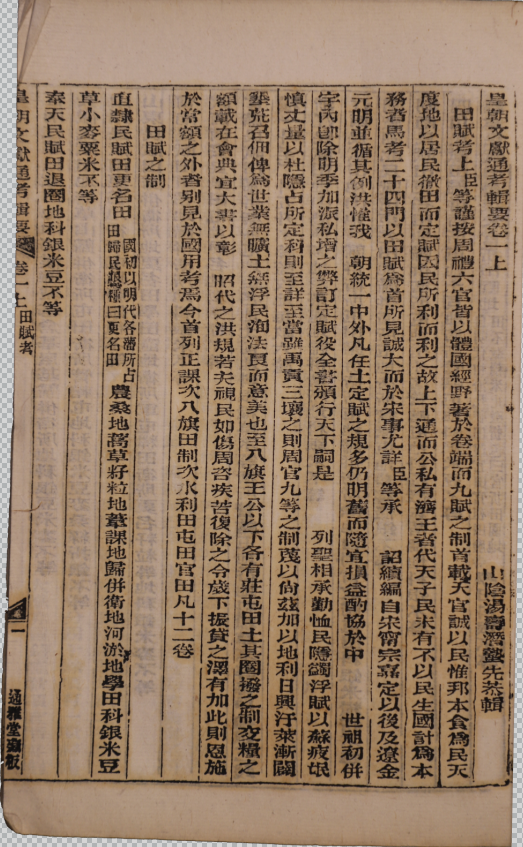 皇朝文獻通考輯要卷一上
山陰湯壽潛蟄先恭輯
田賦考上臣等謹按周禮六官皆以體國經野著於卷端而九賦之制首載天官誠以民惟邦本食爲民天
度地以居民徹田而定賦因民所利而利之故上下通而公私有濟王者代天子民未有不以民生國計爲本
務者馬考二十四門以田賦爲首所見誠大而於宋事尤詳臣等承 詔續編自宋甯宗嘉定以後及遼金
元明並循其例洪惟我 朝統一中外凡任土定賦之規多仍明舊而隨宜損益酌協於中 世祖初併
宇內卽除明季加派私增之弊訂定賦役全書頒行天下嗣是 列聖相承勤恤民隱蠲浮賦以蘇疲氓
愼丈量以杜隱占所定科則至詳至當雖禹貢三壤之則周官九等之制蔑以尚茲加以地利日興汙萊漸闢
墾荒召佃傳爲世業無曠土無浮民洵法良而意美也至八旗王公以下各有莊屯田土其圈撥之制支糧之
額載在會典宜大書以彰 昭代之洪規若夫視民如傷周咨疾苦復除之令歲下振貸之澤有加此則恩施
於常額之外者別見於國用考焉今首列正課次八旗田制次水利田屯田官田凡十二卷
田賦之制
直隸民賦田更名田國初以明代各藩所占田歸民墾種曰更名田農桑地蒿草籽粒地葦課地歸併衛地河淤地學田科銀米豆
草小麥粟米不等
奉天民賦田退圈地科銀米豆不等
皇朝文獻通考輯要 卷一上 田賦考
一
通雅堂藏板